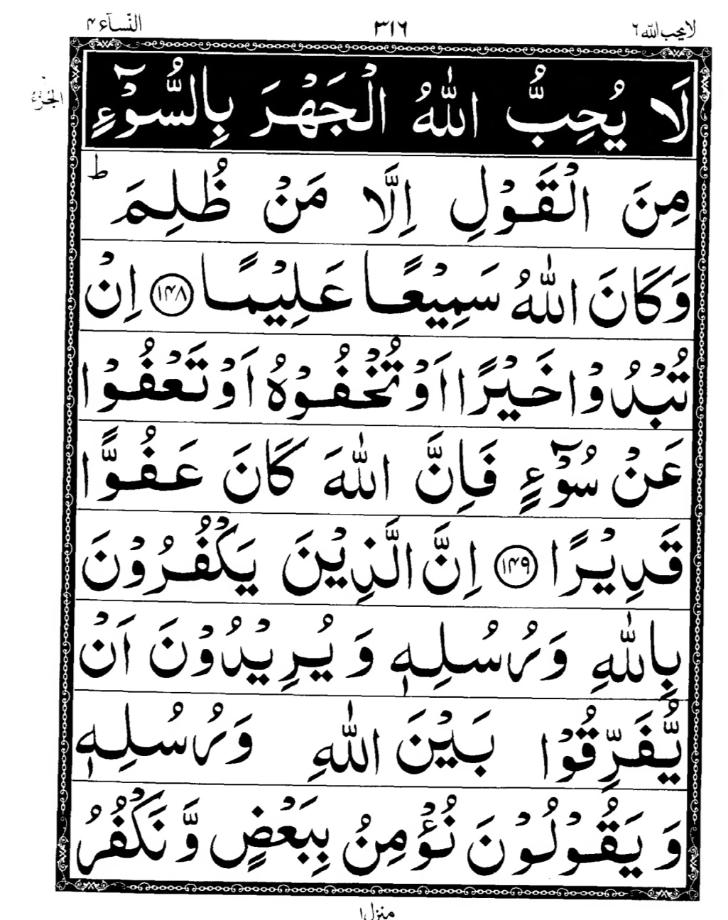 لا یحب اللہ ٦ ٣١٦ النسآء ٤
الجزء
لَا يُحِبُّ اللّٰهُ الْجَهْرَ بِالسُّوْٓءِ
مِنَ الْقَوْلِ اِلَّا مَنْ ظُلِمَ ؕ
وَكَانَ اللّٰهُ سَمِيْعًا عَلِيْمًا ﴿۱۴۸﴾ اِنْ
تُبْدُوْا خَيْرًا اَوْ تُخْفُوْهُ اَوْ تَعْفُوْا
عَنْ سُوْٓءٍ فَاِنَّ اللّٰهَ كَانَ عَفُوًّا
قَدِيْرًا ﴿۱۴۹﴾ اِنَّ الَّذِيْنَ يَكْفُرُوْنَ
بِاللّٰهِ وَرُسُلِهٖ وَيُرِيْدُوْنَ اَنْ
يُّفَرِّقُوْا بَيْنَ اللّٰهِ وَرُسُلِهٖ
وَيَقُوْلُوْنَ نُؤْمِنُ بِبَعْضٍ وَّنَكْفُرُ
منزل ١